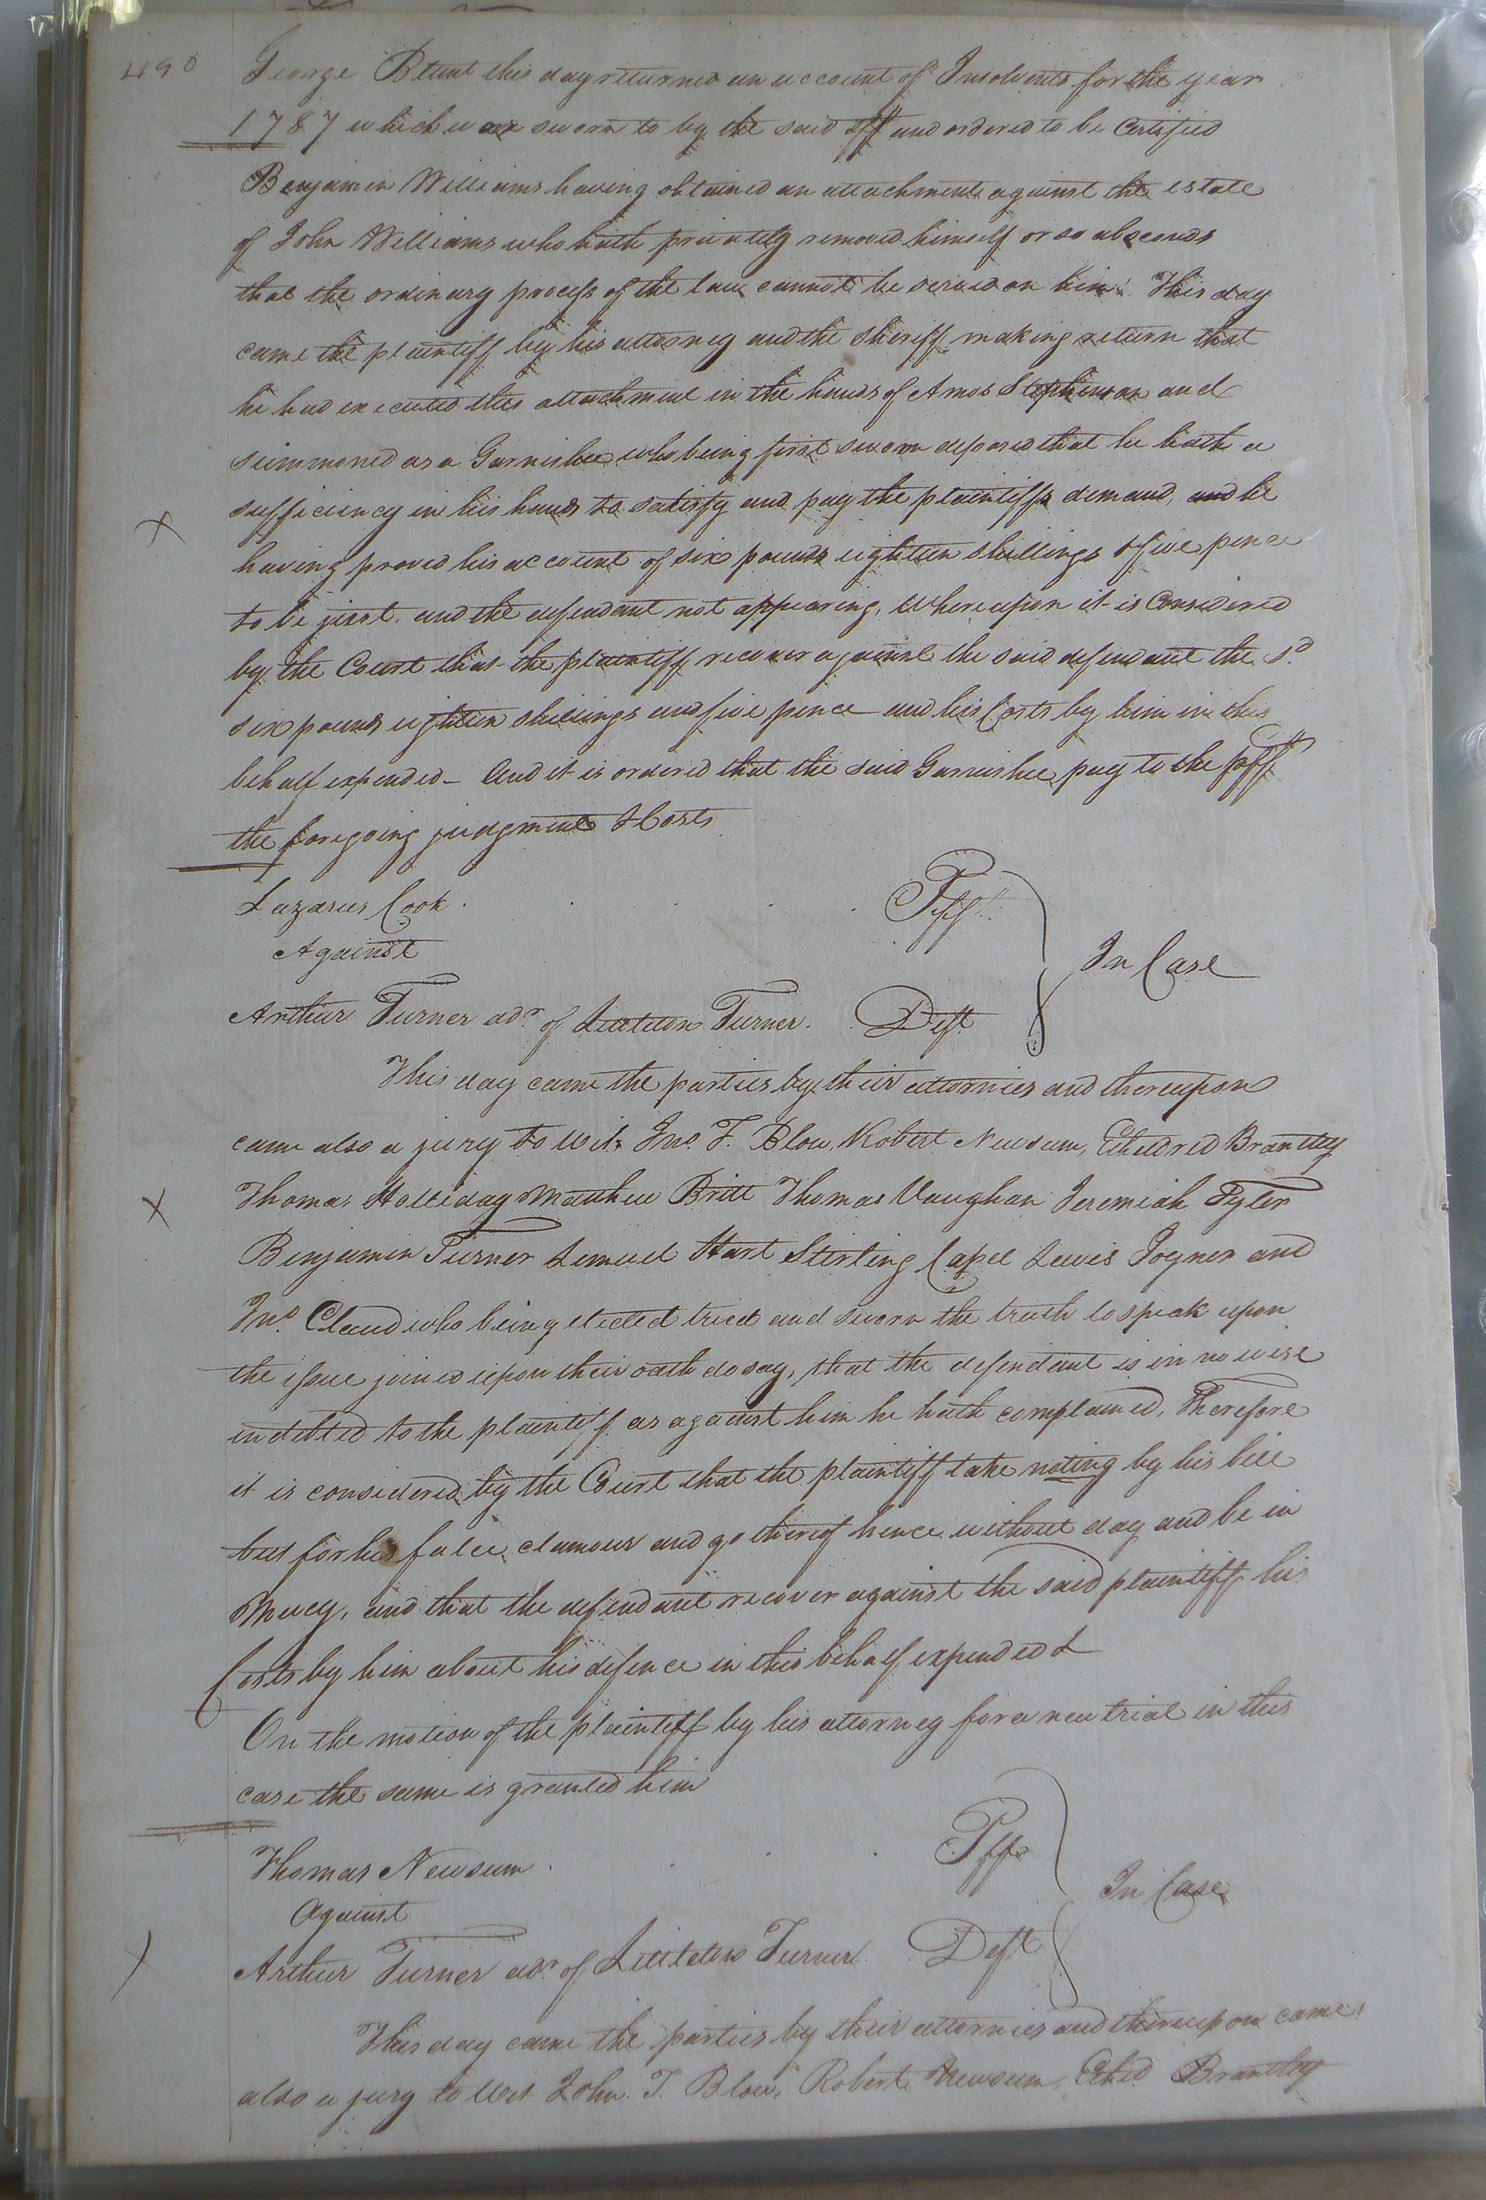 490
George Blunt this day returned an account of Insolvents for the year
1787 which was sworn to by the said Sff and ordered to be Certified
Benjamin Williams having obtained an attachment against the estate
of John Williams who hath privately removed himself or so absconds
that the ordinary process of the law cannot be served on him. This day
came the plaintiff by his attorney and the Sheriff making return that
he had executed this attachment in the hands of Amos Stephenson and
summoned as a Garnishee who being first sworn deposed that he hath a
sufficiency in his hands to satisfy and pay the plaintiffs demand, and he
having proved his account of six pounds eighteen shillings & five pence
to be just. and the defendant not appearing, Whereupon it is Considered
by the Court that the plaintiff recover against the said defendant the sd.
six pounds eighteen shillings and five pence and his Costs by him in this
behalf expended - And it is ordered that the said Garnishee pay to the plff
the foregoing judgment & Costs
Lazarus Cook . . . . Plff
Against
In Case
Arthur Turner adr. of Littleton Turner. Deft
This day came the parties by their attornies and thereupon
came also a jury to wit. Jno. T. Blow, Robert Newsum, Etheldred Brantley
Thomas Holliday Matthew Britt Thomas Vaughan Jeremiah Tyler
Benjamin Turner Lemuel Hart Sterling Capel Lewis Joyner and
Jno. Claud who being elected tried and sworn the truth to speak upon
the issue joined upon their oath do say, that the defendant is in no wise
indebted to the plaintiff as against him he hath complained, Therefore
it is considered by the Court that the plaintiff take noting by his bill
but for his false clamour and go thereof hence without day and be in
Mercy, and that the defendant recover against the said plaintiff his
Costs by him about his defence in this behalf expended &
On the motion of the plaintiff by his attorney for a new trial in this
case the same is granted him
Thomas Newsum . . . . Plff
Against
In Case
Arthur Turner adr. of Littleton Turner. Deft
This day came the parties by their attornies and thereupon came
also a jury to wit John T. Blow, Robert Newsum, Ethed Brantley